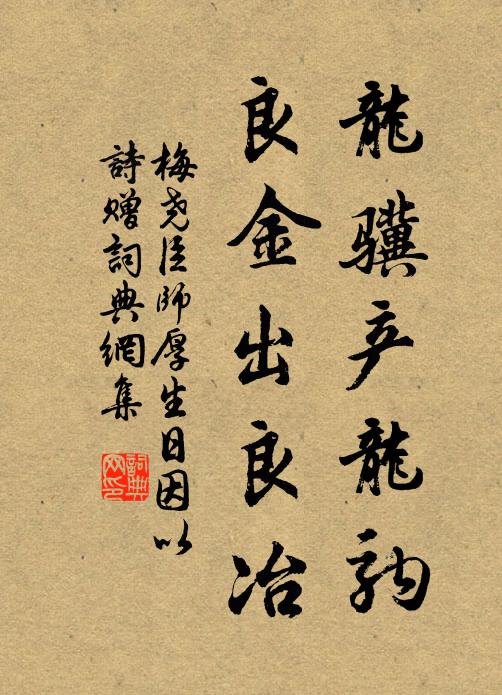 龍驥产龍駒
良金出良冶
梅尧臣師厚生日因以
詩赠詞典網集
詞典
网印